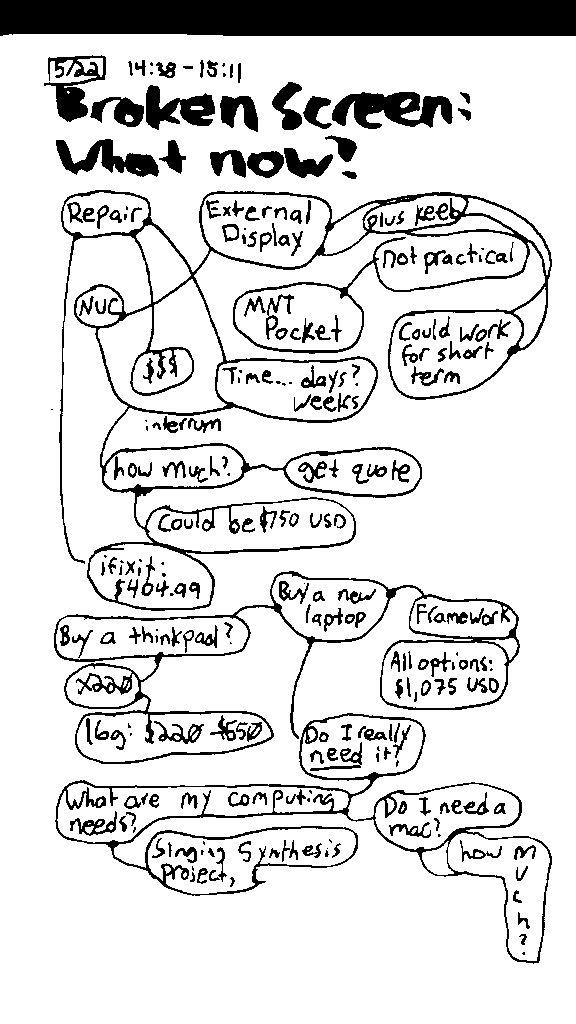 5/22 14:38 - 15:11
Broken Screen:
What now?
Repair
External
Display
plus keeb
not practical
NUC
MNT
Pocket
Could work
for short
term
$$$
Time... days?
weeks
interrum
how much?
get quote
Could be $750 USD
ifixit:
$404.99
Buy a new
laptop
Framework
Buy a thinkpad?
All options:
$1,075 USD
x220
16g: $220-$650
Do I really
need it?
What are my computing
needs?
Do I need a
mac?
Singing Synthesis
project,
how much?